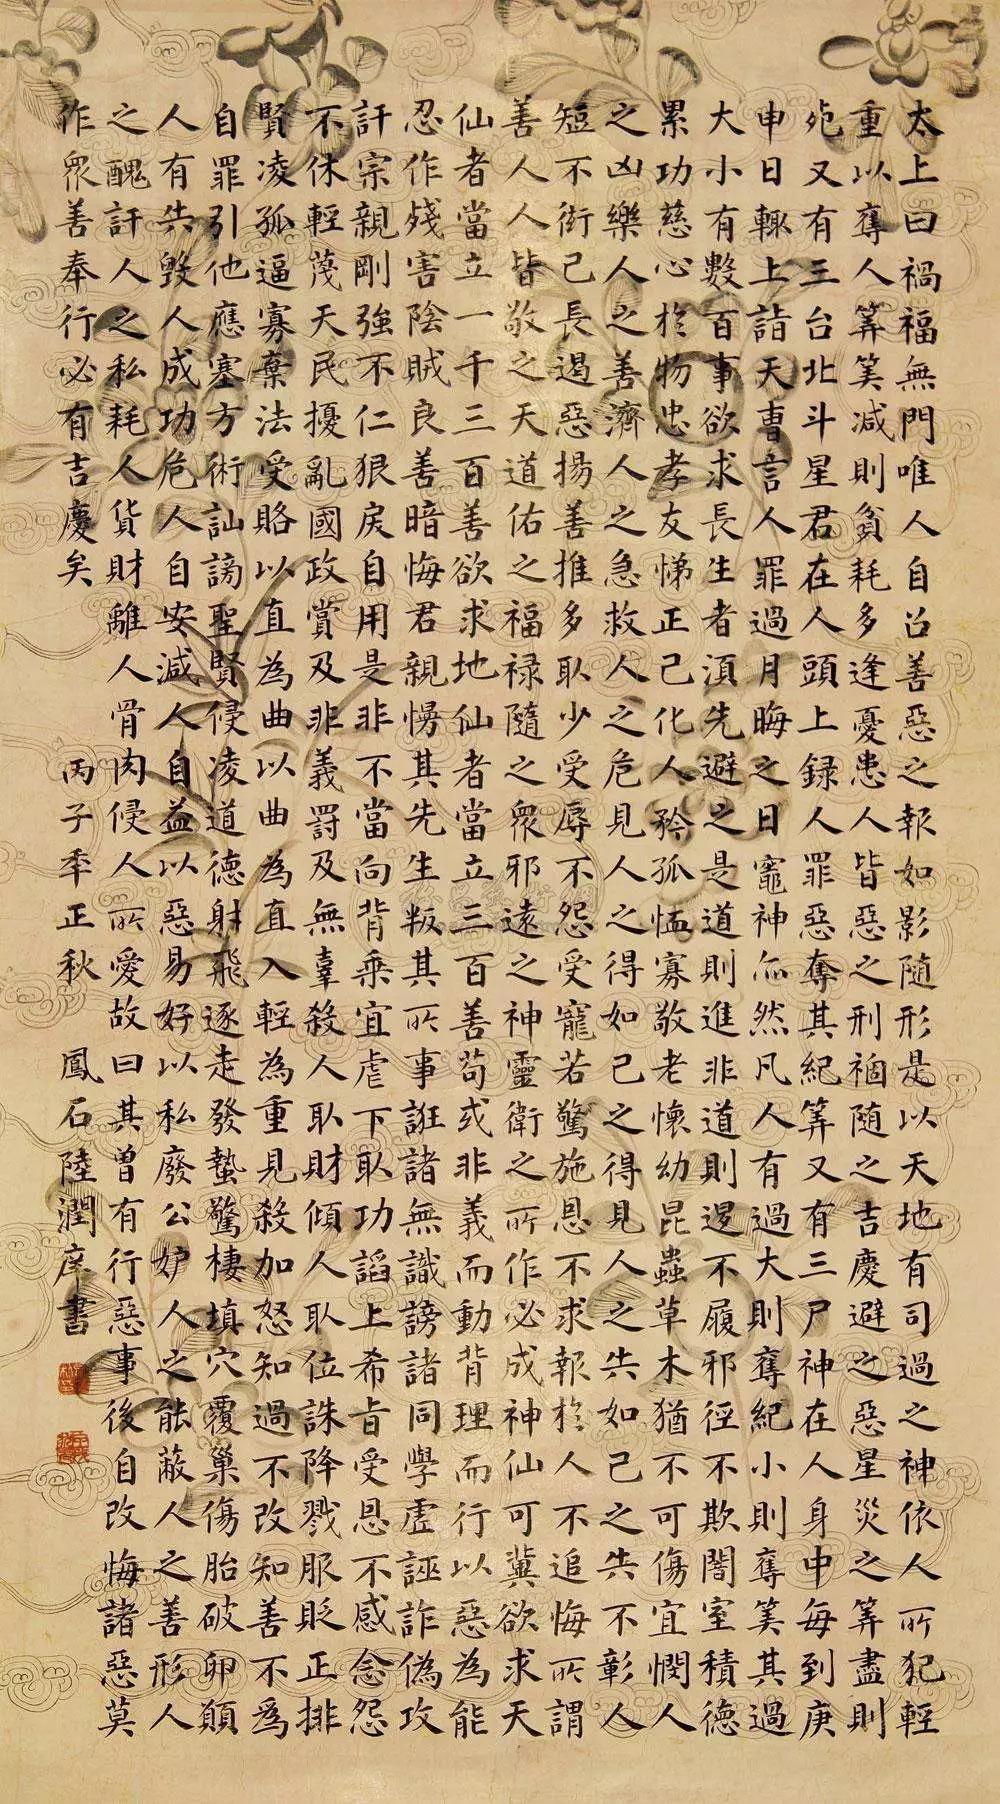 太上曰禍福無門唯人自召善惡之報如影随形是以天地有司過之神依人所犯輕
重以奪人筭筭减則貧耗多逢憂患人皆惡之刑禍随之吉慶避之惡星災之筭盡則
死又有三台北斗星君在人頭上録人罪惡奪其紀筭又有三尸神在人身中每到庚
申日輙上詣天曹言人罪過月晦之日竈神亦然凡人有過大則奪紀小則奪筭其過
大小有數百事欲求長生者須先避之是道則進非道則退不履邪徑不欺闇室積德
累功慈心於物忠孝友悌正己化人矜孤恤寡敬老懷幼昆蟲草木猶不可傷宜憫人
之凶樂人之善濟人之急救人之危見人之得如己之得見人之失如己之失不彰人
短不衒己長遏惡揚善推多取少受辱不怨受寵若驚施恩不求報於人不追悔所謂
善人人皆敬之天道佑之福禄隨之衆邪遠之神靈衛之所作必成神仙可冀欲求天
仙者當立一千三百善欲求地仙者當立三百善苟或非義而動背理而行以惡為能
忍作殘害陰賊良善暗悔君親慢其先生叛其所事誑諸無識謗諸同學虚誣詐偽攻
訐宗親剛強不仁狠戾自用是非不當向背乖宜虐下取功諂上希旨受恩不感念怨
不休輕蔑天民擾亂國政賞及非義罸及無辜殺人取財傾人取位誅降戮服貶正排
賢凌孤逼寡棄法受賂以直為曲以曲為直入輕為重見殺加怒知過不改知善不爲
自罪引他應塞方術訕謗聖賢侵凌道德射飛逐走發蟄驚棲填穴覆巢傷胎破卵願
人有失毀人成功危人自安减人自益以惡易好以私廢公妒人之能蔽人之善形人
之醜訐人之私耗人貨財離人骨肉侵人所愛故曰其曾有行惡事後自改悔諸惡莫
作衆善奉行必有吉慶矣 丙子年正秋 鳳石陸潤庠書